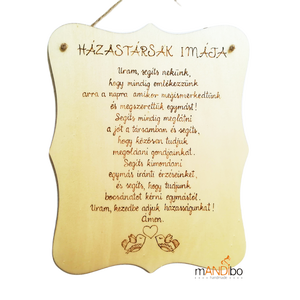 HÁZASTÁRSAK IMÁJA
Uram, segíts nekünk,
hogy mindig emlékezzünk
arra a napra amikor megismerkedtünk
és megszerettük egymást!
Segíts mindig meglátni
a jót a társamban és segíts,
hogy közösen tudjuk
megoldani gondjainkat.
Segíts kimondani
egymás iránti érzéseinket,
és segíts, hogy tudjunk
bocsánatot kérni egymástól.
Uram, kezedbe adjuk házasságunkat!
Ámen.
mANDIbo